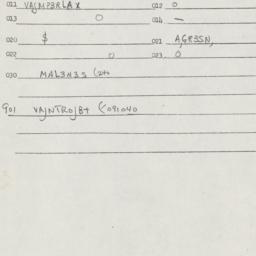 011 VAJMP3RLAX 012 0
013 0 014 —
020 $ 021 A,GR3SN,
022 0 023 0
030 MAL3H3S (2+0
901 VAJNTROJB+ (091040